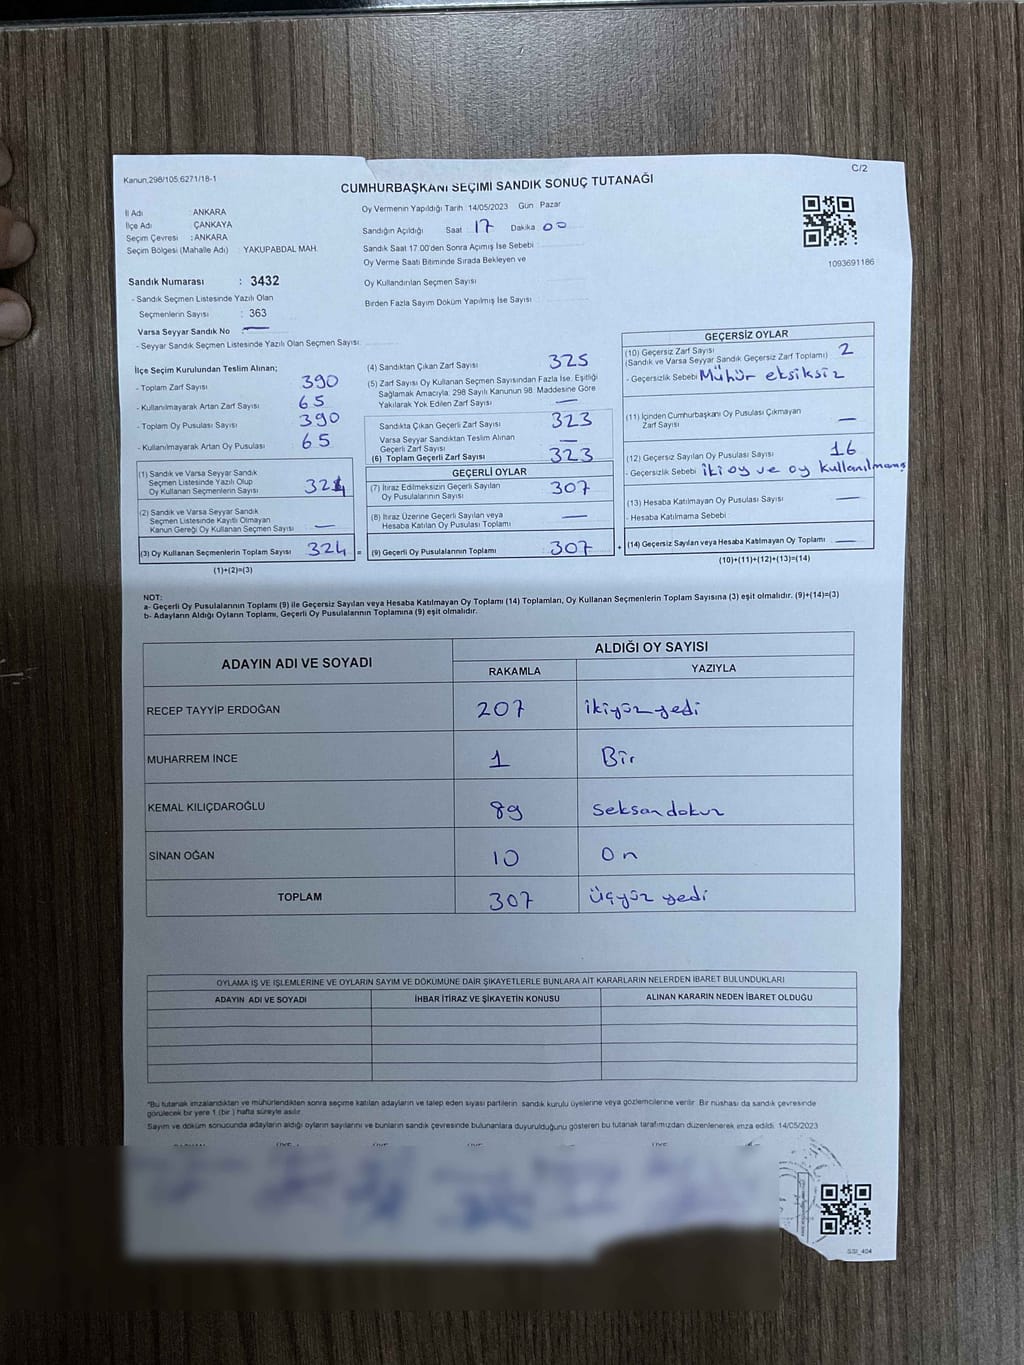 Kanun,298/105.6271/18-1
C/2
CUMHURBAŞKANI SEÇİMİ SANDIK SONUÇ TUTANAĞI
İl Adı : ANKARA
İlçe Adı : ÇANKAYA
Seçim Çevresi : ANKARA
Seçim Bölgesi (Mahalle Adı) YAKUPABDAL MAH.
Sandık Numarası : 3432
- Sandık Seçmen Listesinde Yazılı Olan
Seçmenlerin Sayısı : 363
Varsa Seyyar Sandık No —
- Seyyar Sandık Seçmen Listesinde Yazılı Olan Seçmen Sayısı:
Oy Vermenin Yapıldığı Tarih 14/05/2023 Gün Pazar
Sandığın Açıldığı Saat 17 Dakika 00
Sandık Saat 17.00'den Sonra Açımış İse Sebebi
Oy Verme Saati Bitiminde Sırada Bekleyen ve
Oy Kullandırılan Seçmen Sayısı
Birden Fazla Sayım Döküm Yapılmış İse Sayısı
1093691186
İlçe Seçim Kurulundan Teslim Alınan;
- Toplam Zarf Sayısı 390
- Kullanılmayarak Artan Zarf Sayısı 65
- Toplam Oy Pusulası Sayısı 390
- Kullanılmayarak Artan Oy Pusulası 65
(1) Sandık ve Varsa Seyyar Sandık
Seçmen Listesinde Yazılı Olup
Oy Kullanan Seçmenlerin Sayısı 324
(2) Sandık ve Varsa Seyyar Sandık
Seçmen Listesinde Kayıtlı Olmayan
Kanun Gereği Oy Kullanan Seçmen Sayısı —
(3) Oy Kullanan Seçmenlerin Toplam Sayısı 324 =
(1)+(2)=(3)
(4) Sandıktan Çıkan Zarf Sayısı 325
(5) Zarf Sayısı Oy Kullanan Seçmen Sayısından Fazla İse, Eşitliği
Sağlamak Amacıyla; 298 Sayılı Kanunun 98. Maddesine Göre
Yakılarak Yok Edilen Zarf Sayısı —
Sandıkta Çıkan Geçerli Zarf Sayısı 323
Varsa Seyyar Sandıktan Teslim Alınan
Geçerli Zarf Sayısı —
(6) Toplam Geçerli Zarf Sayısı 323
GEÇERLİ OYLAR
(7) İtiraz Edilmeksizin Geçerli Sayılan
Oy Pusulalarının Sayısı 307
(8) İtiraz Üzerine Geçerli Sayılan veya
Hesaba Katılan Oy Pusulası Toplamı —
(9) Geçerli Oy Pusulalarının Toplamı 307 +
GEÇERSİZ OYLAR
(10) Geçersiz Zarf Sayısı
(Sandık ve Varsa Seyyar Sandık Geçersiz Zarf Toplamı) 2
- Geçersizlik Sebebi Mühür eksiksiz
(11) İçinden Cumhurbaşkanı Oy Pusulası Çıkmayan
Zarf Sayısı —
(12) Geçersiz Sayılan Oy Pusulası Sayısı 16
- Geçersizlik Sebebi iki oy ve oy kullanılmamış
(13) Hesaba Katılmayan Oy Pusulası Sayısı —
- Hesaba Katılmama Sebebi
(14) Geçersiz Sayılan veya Hesaba Katılmayan Oy Toplamı —
(10)+(11)+(12)+(13)=(14)
NOT:
a- Geçerli Oy Pusulalarının Toplamı (9) ile Geçersiz Sayılan veya Hesaba Katılmayan Oy Toplamı (14) Toplamları, Oy Kullanan Seçmenlerin Toplam Sayısına (3) eşit olmalıdır. (9)+(14)=(3)
b- Adayların Aldığı Oyların Toplamı, Geçerli Oy Pusulalarının Toplamına (9) eşit olmalıdır.
ADAYIN ADI VE SOYADI ALDIĞI OY SAYISI
RAKAMLA YAZIYLA
RECEP TAYYİP ERDOĞAN 207 ikiyüz yedi
MUHARREM İNCE 1 Bir
KEMAL KILIÇDAROĞLU 89 seksan dokuz
SİNAN OĞAN 10 On
TOPLAM 307 üçyüz yedi
OYLAMA İŞ VE İŞLEMLERİNE VE OYLARIN SAYIM VE DÖKÜMÜNE DAİR ŞİKAYETLERLE BUNLARA AİT KARARLARIN NELERDEN İBARET BULUNDUKLARI
ADAYIN ADI VE SOYADI İHBAR İTİRAZ VE ŞİKAYETİN KONUSU ALINAN KARARIN NEDEN İBARET OLDUĞU
*Bu tutanak imzalandıktan ve mühürlendikten sonra seçime katılan adayların ve talep eden siyasi partilerin, sandık kurulu üyelerine veya gözlemcilerine verilir. Bir nüshası da sandık çevresinde
görülecek bir yere 1 (bir ) hafta süreyle asılır.
Sayım ve döküm sonucunda adayların aldığı oyların sayılarını ve bunların sandık çevresinde bulunanlara duyurulduğunu gösteren bu tutanak tarafımızdan düzenlenerek imza edildi. 14/05/2023
SSI_404